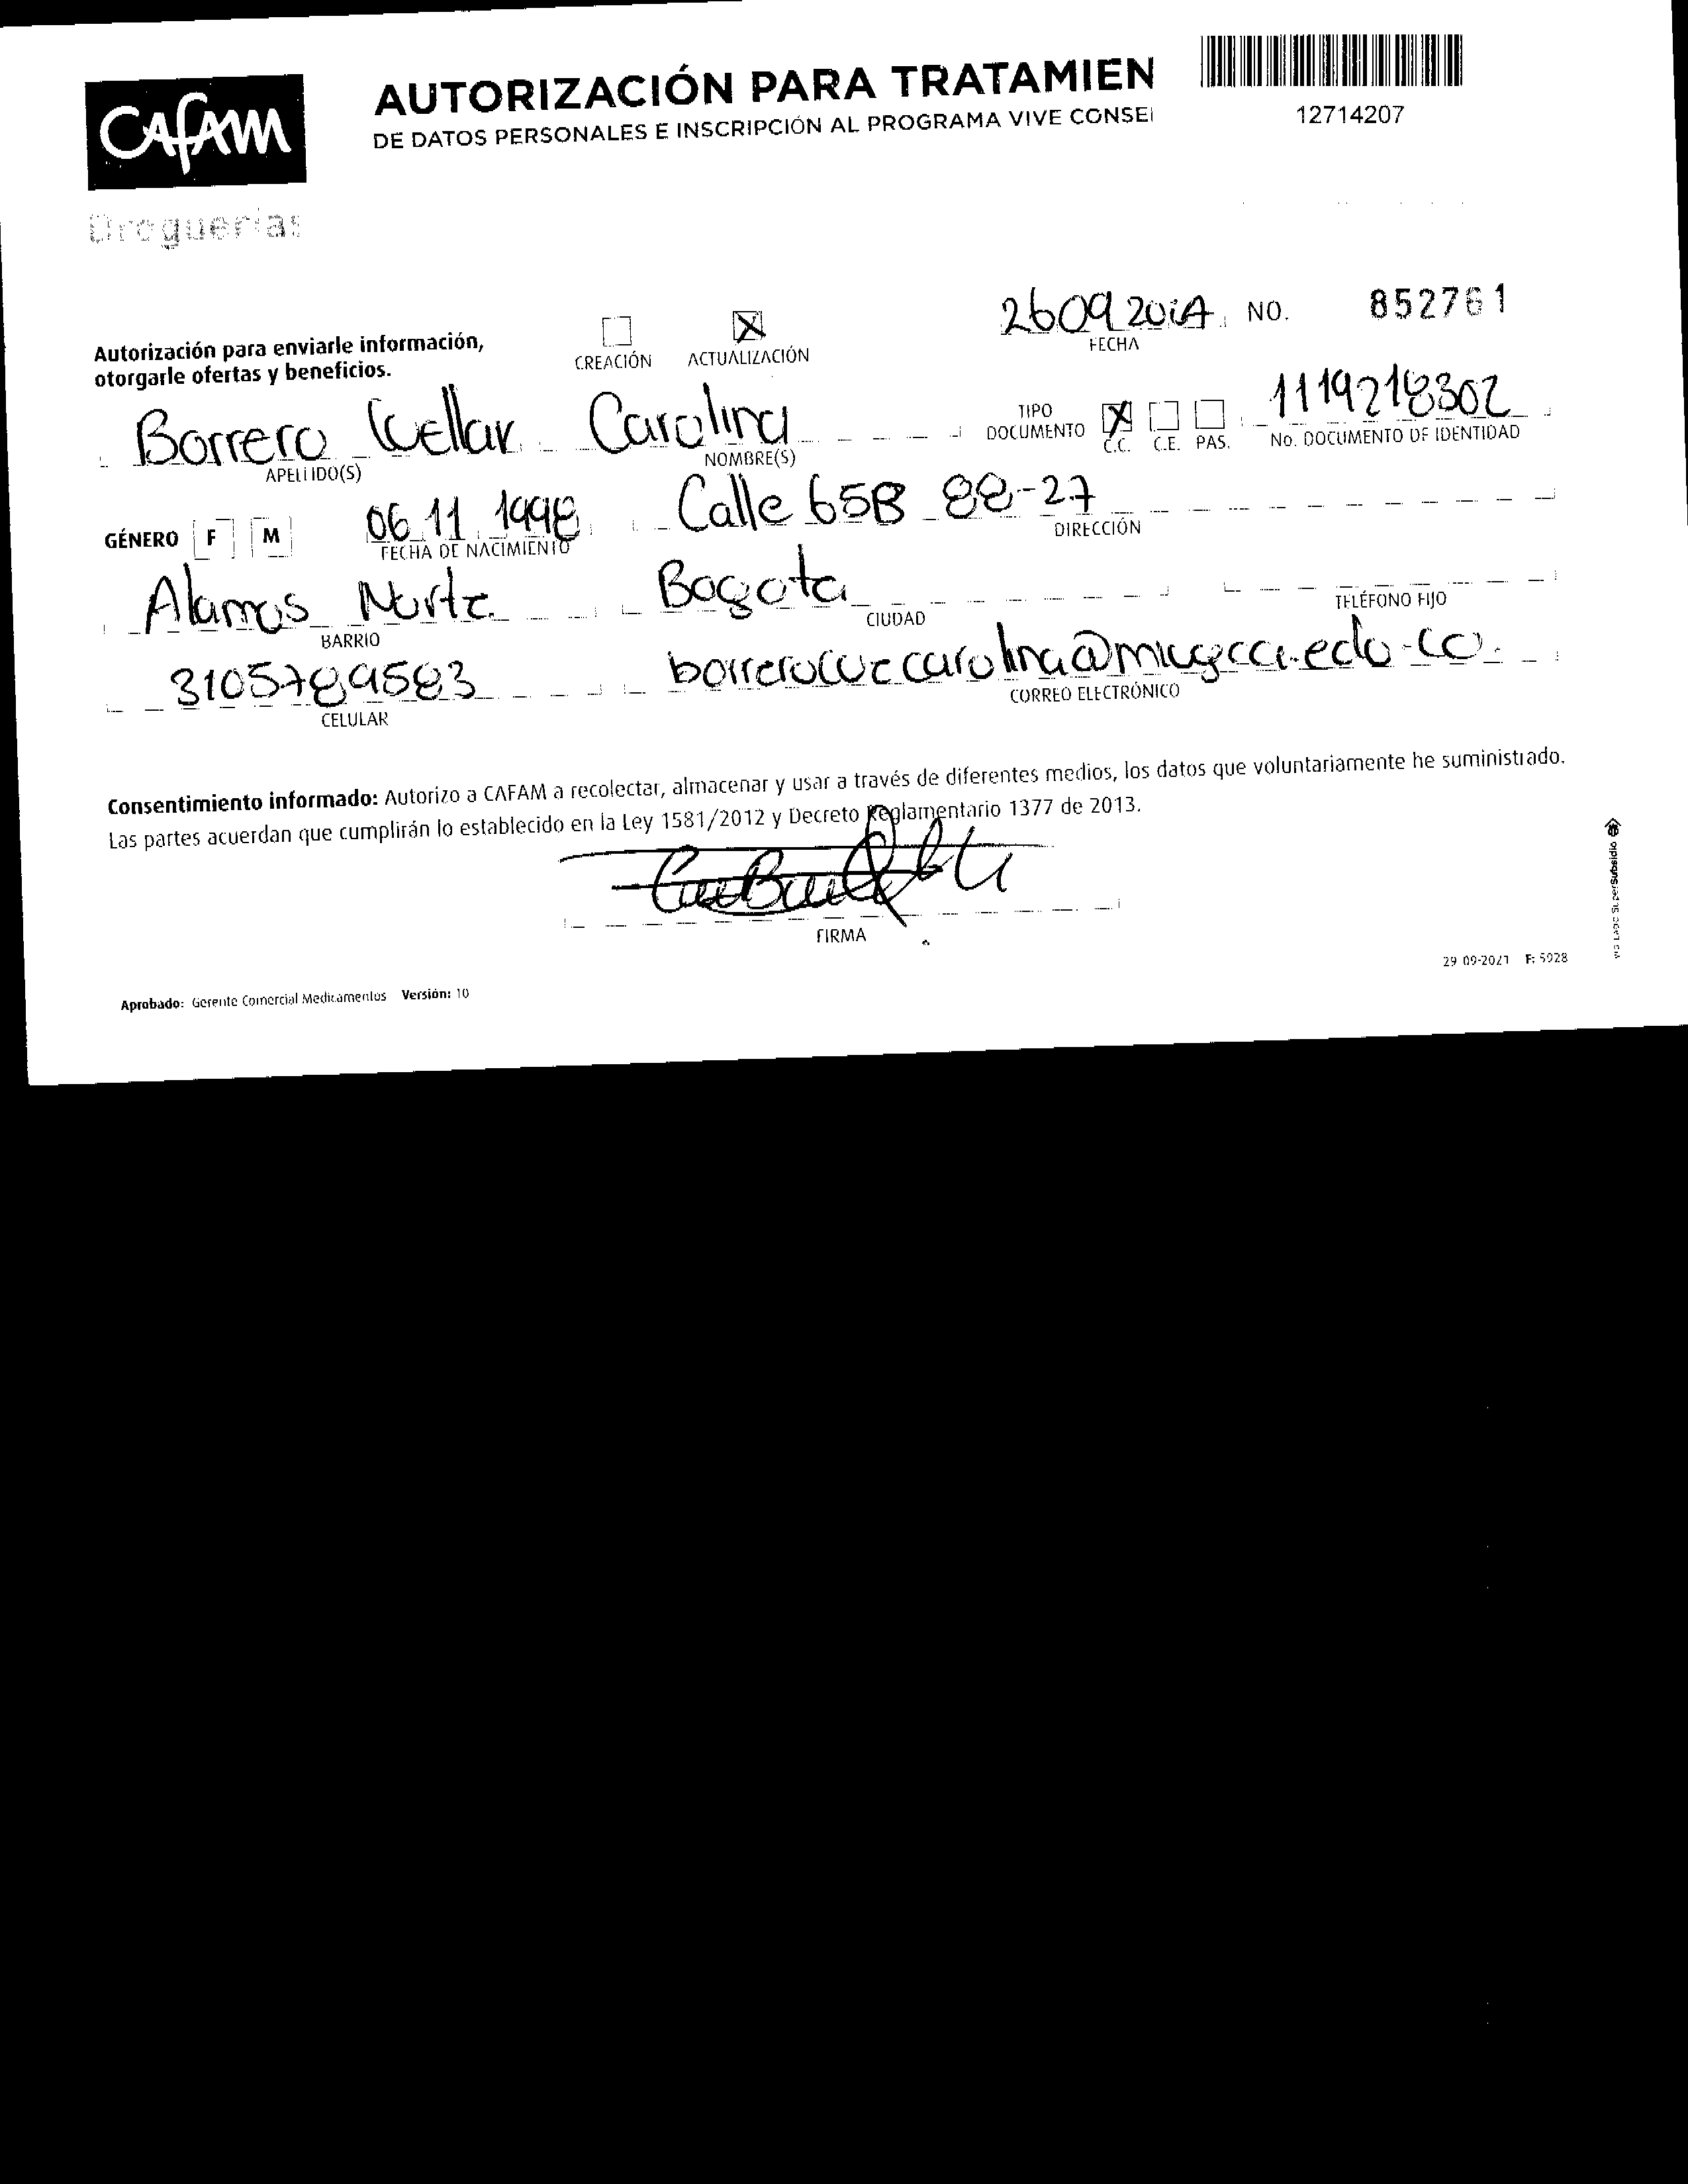 CAFAM
AUTORIZACIÓN PARA TRATAMIEN
DE DATOS PERSONALES E INSCRIPCIÓN AL PROGRAMA VIVE CONSE
12714207
Droguerías
Autorización para enviarle información,
otorgarle ofertas y beneficios.
CREACIÓN X ACTUALIZACIÓN
26 09 FECHA NO. 852761
Borrero Cuellar Carolina
APELLIDO(S) NOMBRE(S)
TIPO DOCUMENTO X C.C. C.E. PAS.
1119218302
No. DOCUMENTO DE IDENTIDAD
GÉNERO F M
06 11 1998 Calle 65B 88-27
FECHA DE NACIMIENTO DIRECCIÓN
Alamos Norte Bogota
BARRIO CIUDAD TELÉFONO FIJO
3105789583
CELULAR CORREO ELECTRÓNICO
Consentimiento informado: Autorizo a CAFAM a recolectar, almacenar y usar a través de diferentes medios, los datos que voluntariamente he suministrado.
Las partes acuerdan que cumplirán lo establecido en la Ley 1581/2012 y Decreto Reglamentario 1377 de 2013.
FIRMA
29-09-2021 F: 5928
Aprobado: Gerente Comercial Medicamentos Versión: 10
SuperSubsidio